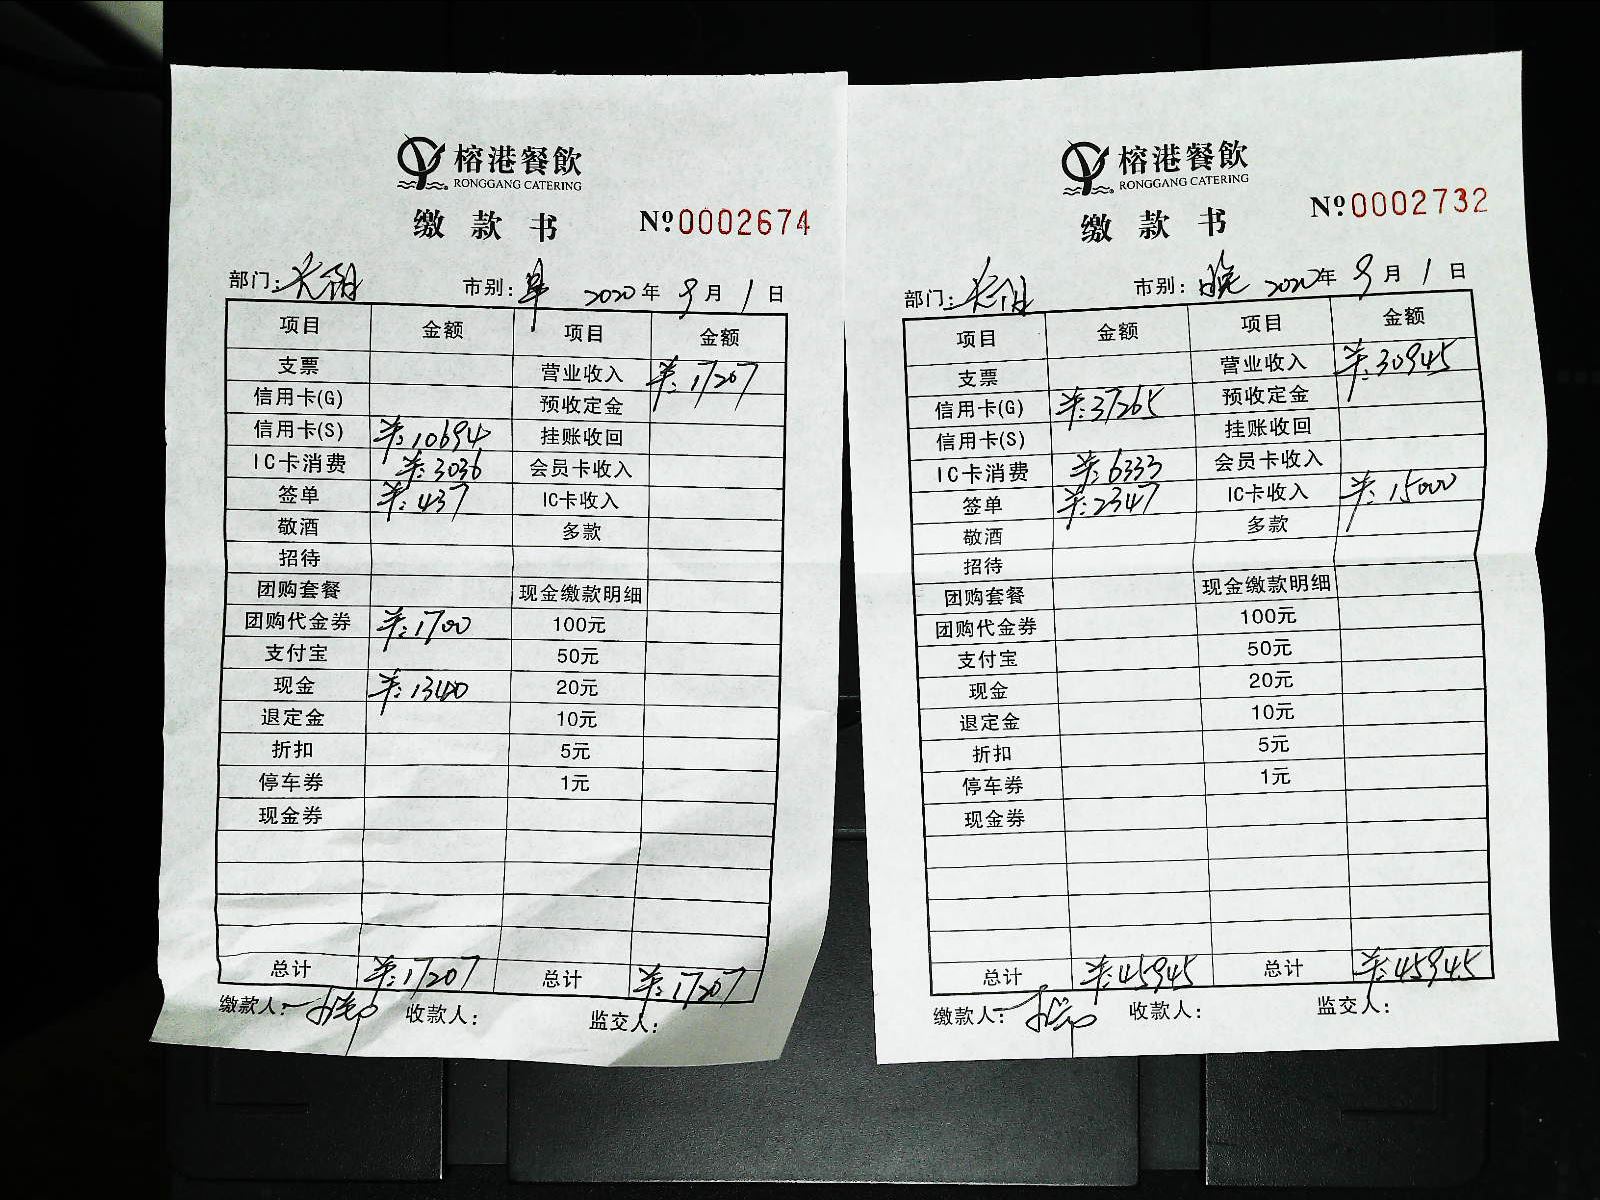 榕港餐飲
RONGGANG CATERING
缴款书 Nº 0002674
部门: 市别: 早 2020年9月1日
项目 金额 项目 金额
支票 营业收入 ¥:17207
信用卡(G) 预收定金
信用卡(S) ¥:10694 挂账收回
IC卡消费 ¥:3036 会员卡收入
签单 ¥:437 IC卡收入
敬酒 多款
招待
团购套餐 现金缴款明细
团购代金券 ¥:1700 100元
支付宝 50元
现金 20元
退定金 10元
折扣 5元
停车券 1元
现金券
总计 ¥:17207 总计 ¥:17207
缴款人: 收款人: 监交人:
榕港餐飲
RONGGANG CATERING
缴款书 Nº 0002732
部门: 市别: 晚 2020年9月1日
项目 金额 项目 金额
支票 营业收入 ¥:30945
信用卡(G) ¥:37265 预收定金
信用卡(S) 挂账收回
IC卡消费 ¥:6333 会员卡收入
签单 ¥:2347 IC卡收入 ¥:15000
敬酒 多款
招待
团购套餐 现金缴款明细
团购代金券 100元
支付宝 50元
现金 20元
退定金 10元
折扣 5元
停车券 1元
现金券
总计 ¥:45945 总计 ¥:45945
缴款人: 收款人: 监交人: